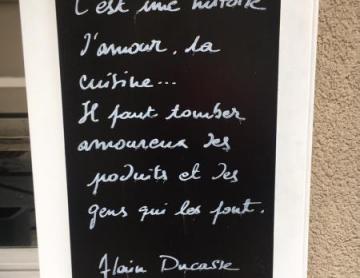 C'est une histoire
d'amour, la
cuisine...
Il faut tomber
amoureux des
produits et des
gens qui les font.
Alain Ducasse